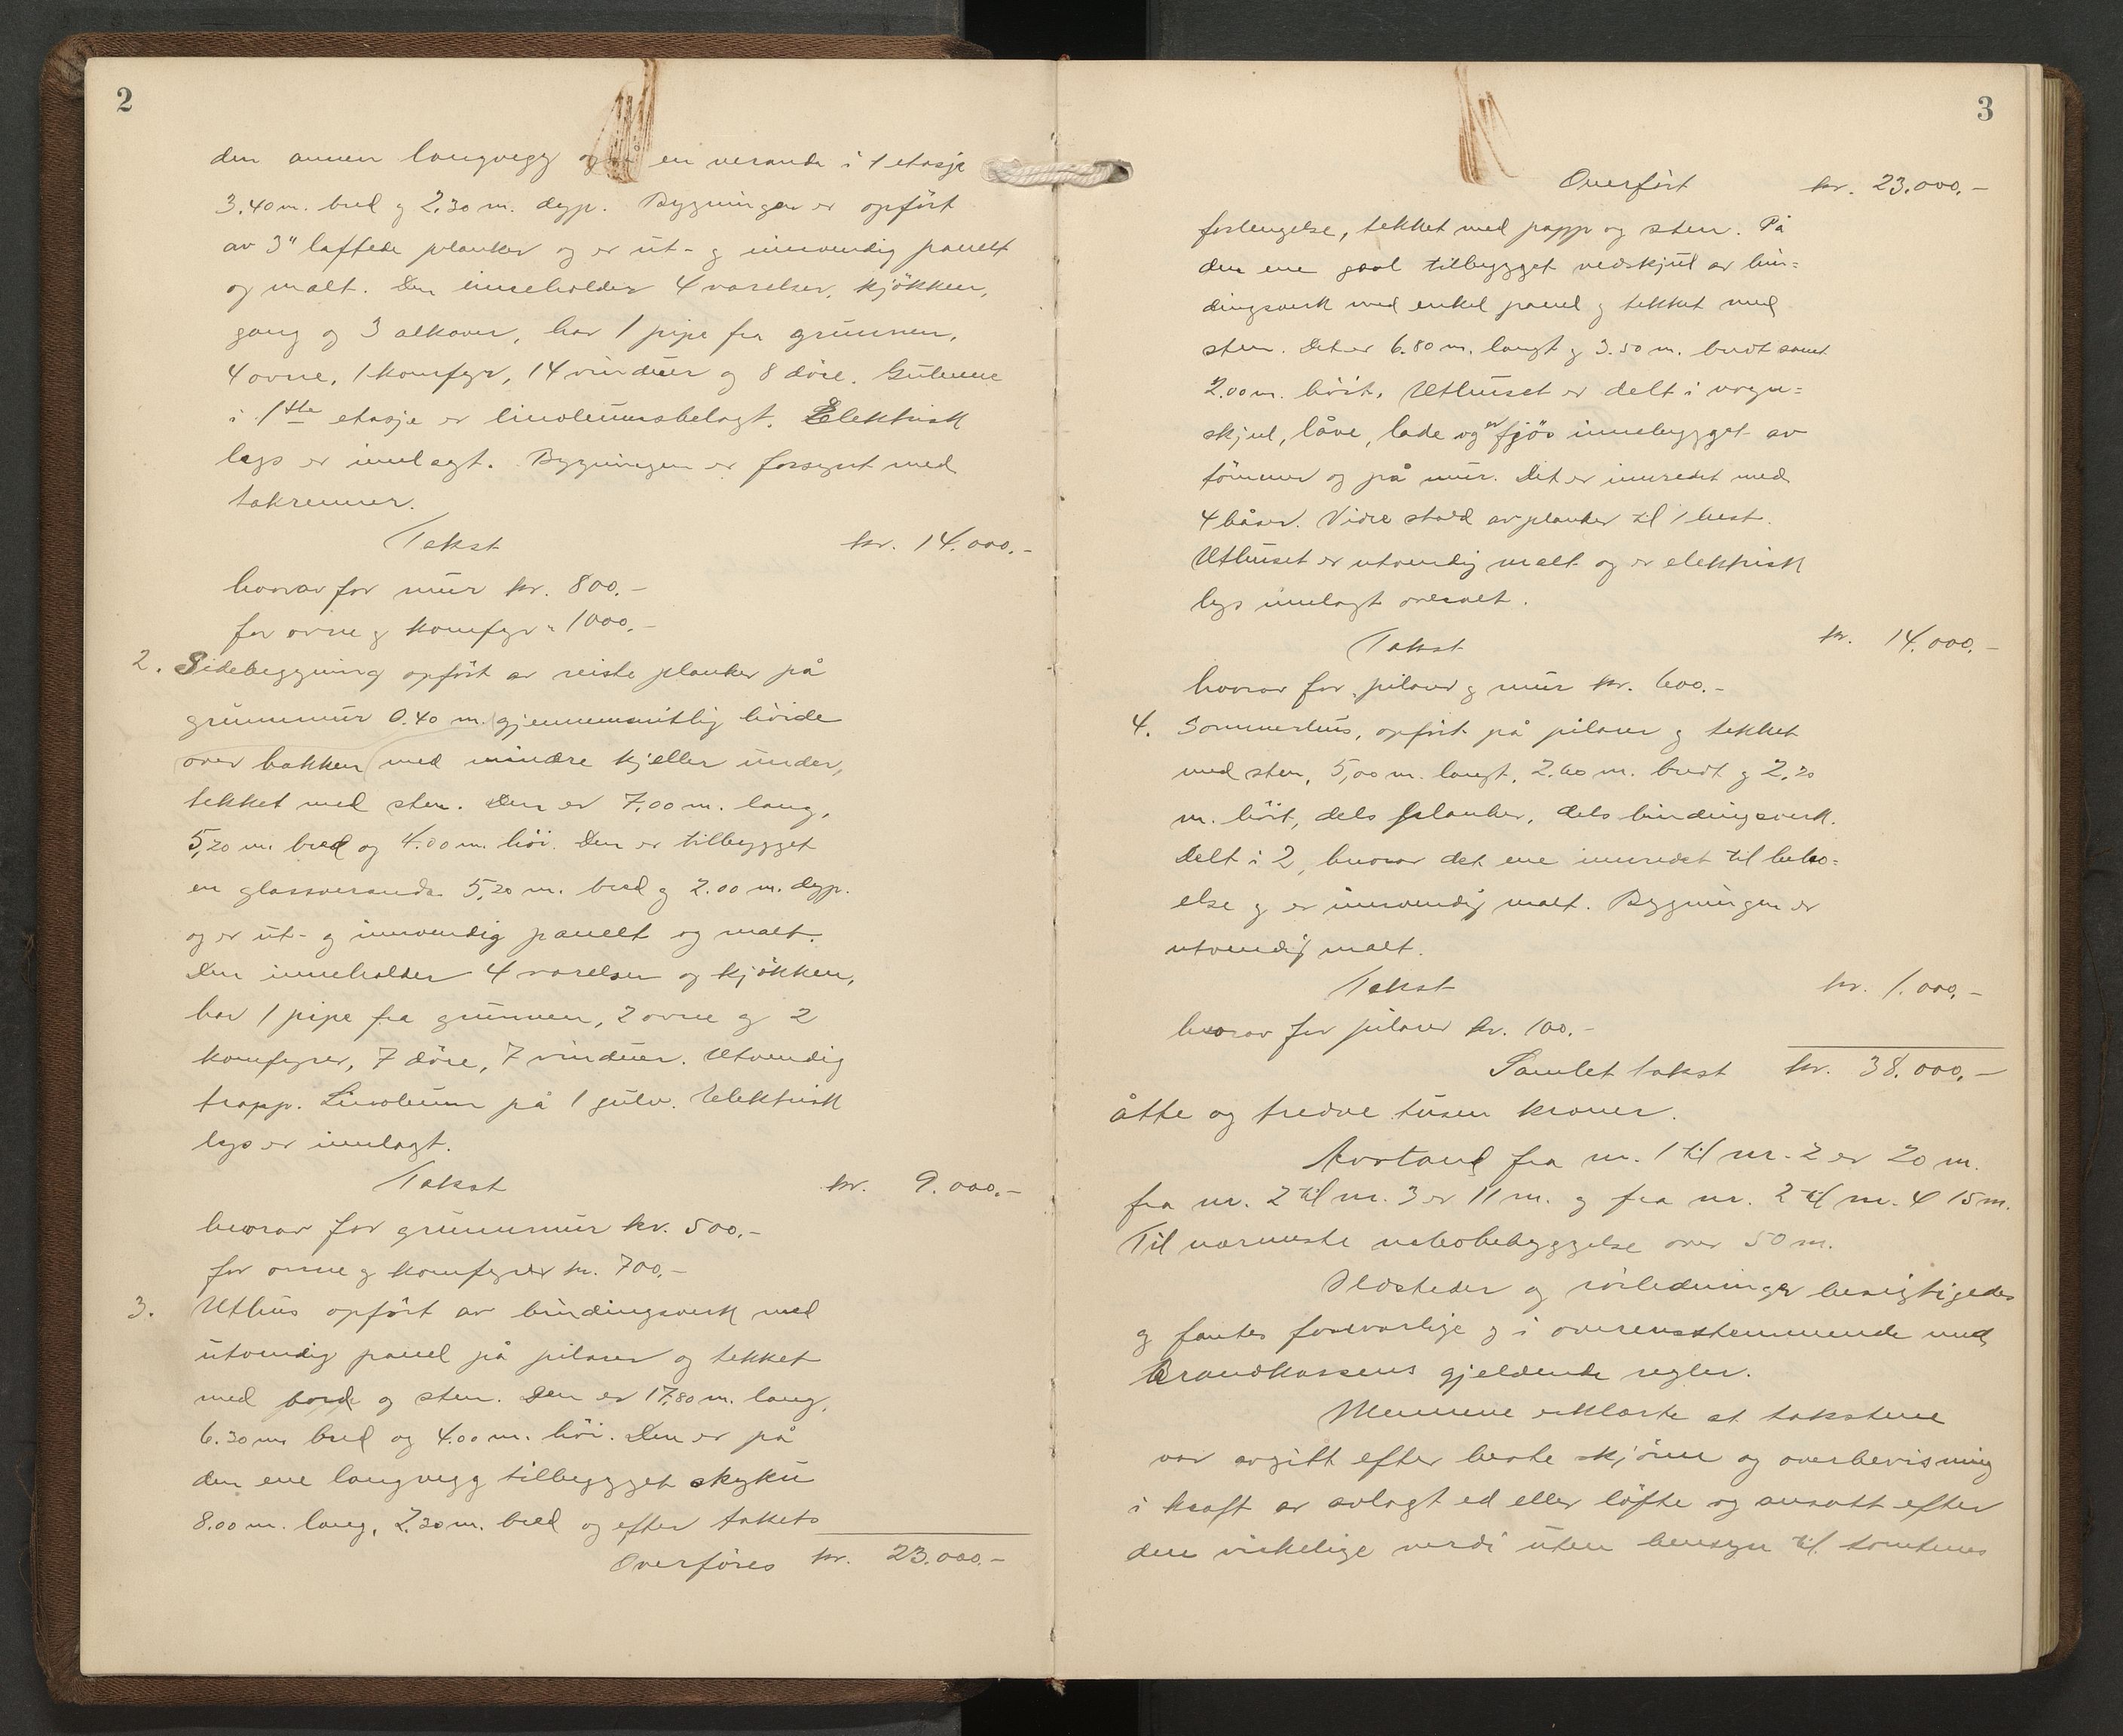 2
den annen langvegg også en veranda i 1 etasje
3.40 m. bred og 2.30 m. dyp. Bygningen er opført
av 3" laftede planker og er ut- og innvendig panelt
og malt. Den inneholder 4 værelser, kjøkken,
gang og 3 alkover, har 1 pipe fra grunnen,
4 ovne, 1 komfyr, 14 vinduer og 8 døre. Gulvene
i 1ste etasje er linoleumsbelagt. Elektrisk
lys er innlagt. Bygningen er forsynt med
takrenner.
Takst kr. 14.000.-
hvorav for mur kr. 800.-
for ovne og komfyr " 1000.-
2. Sidebygning opført av reiste planker på
grunnmur 0.40 m. gjennemsnitlig høide
over bakken med mindre kjeller under,
tekket med sten. Den er 7.00 m. lang,
5,20 m. bred og 4.00 m. høi. Den er tilbygget
en glassveranda 5,20 m. bred og 2.00 m. dyp.
og er ut- og innvendig panelt og malt.
Den inneholder 4 værelser og kjøkken,
har 1 pipe fra grunnen, 2 ovne og 2
komfyrer, 7 døre, 7 vinduer. Utvendig
trapp. Linoleum på 1 gulv. Elektrisk
lys er innlagt.
Takst kr. 9.000.-
hvorav for grunnmur kr. 500.-
for ovne og komfyrer kr. 700.-
3. Uthus opført av bindingsverk med
utvendig panel på pilarer og tekket
med bord og sten. Den er 17,80 m. lang,
6.30 m. bred og 4.00 m. høi. Den er på
den ene langvegg tilbygget skyku
8.00 m. lang, 2.30 m. bred og efter takets
Overføres kr. 23.000.-
3
Overført kr. 23.000.-
forlengelse, tekket med papp og sten. På
den ene gavl tilbygget vedskjul av bin=
dingsverk med enkel panel og tekket med
sten. Det er 6.80 m. langt og 3.50 m. bredt samt
2.00 m. høit. Uthuset er delt i vogn=
skjul, låve, lade og er fjøs innebygget av
tømmer og på mur. Det er innredet med
4 båser. Videre stald av planker til 1 hest.
Uthuset er utvendig malt og er elektrisk
lys innlagt overalt.
Takst kr. 14.000.-
hvorav for pilarer og mur kr. 600.-
4. Sommerhus, opført på pilarer og tekket
med sten, 5,00 m. langt, 2.60 m. bredt og 2,20
m. høit, dels planker, dels bindingsverk.
Delt i 2, hvorav det ene innredet til bebo=
else og er innvendig malt. Bygningen er
utvendig malt.
Takst kr. 1.000.-
hvorav for pilarer kr. 100.-
Samlet takst kr. 38.000.-
åtte og tredve tusen kroner.
Avstand fra nr. 1 til nr. 2 er 20 m.
fra nr. 2 til nr. 3 er 11 m. og fra nr. 2 til nr. 4 15 m.
Til nærmeste nabobebyggelse over 50 m.
Ildsteder og rørledninger besigtigedes
og fantes forsvarlige og i overensstemmende med
Brandkassens gjeldende regler.
Mennene erklærte at takstene
var avgitt efter beste skjønn og overbevisning
i kraft av avlagt ed eller løfte og ansatt efter
den virkelige verdi uten hensyn til tomtenes